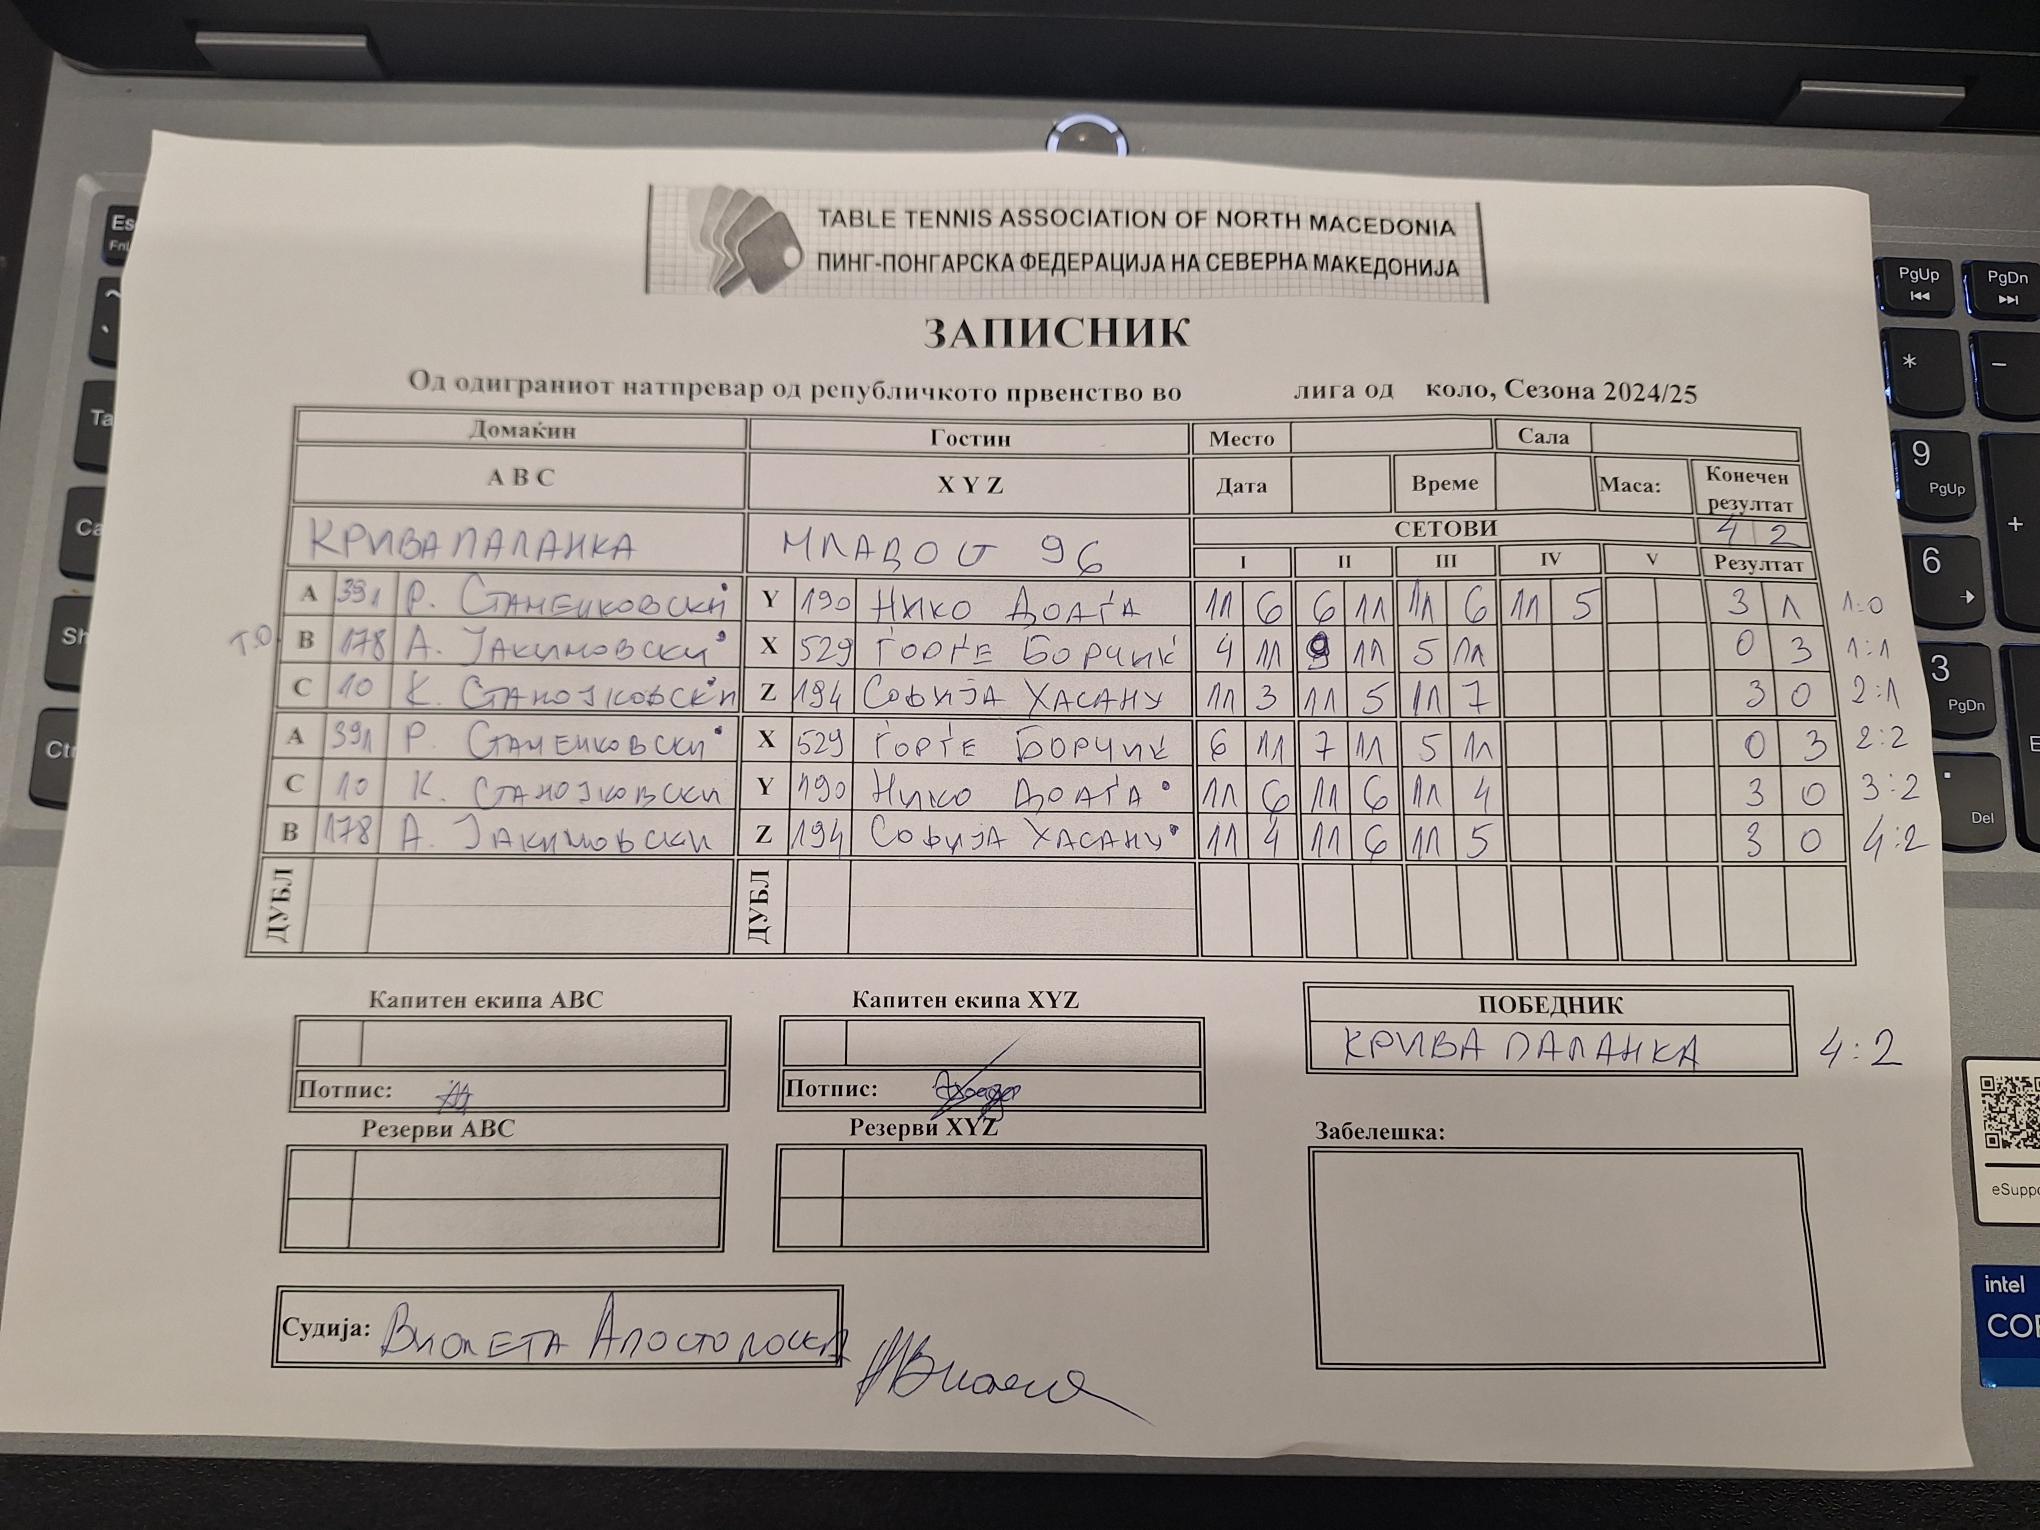 TABLE TENNIS ASSOCIATION OF NORTH MACEDONIA
ПИНГ-ПОНГАРСКА ФЕДЕРАЦИЈА НА СЕВЕРНА МАКЕДОНИЈА
ЗАПИСНИК
Од одиграниот натпревар од републичкото првенство во лига од коло, Сезона 2024/25
Домаќин Гостин Место Сала
A B C X Y Z Дата Време Маса: Конечен резултат
КРИВА ПАЛАНКА МЛАДОСТ 96 СЕТОВИ 4 2
I II III IV V Резултат
A 391 Р. СТАМЕНКОВСКИ Y 190 НИКО ДОАГА 11 6 6 11 11 6 11 5 3 1 1:0
Т.О. B 178 А. ЈАКИМОВСКИ X 529 ЃОРЃЕ БОРЧИЌ 4 11 9 11 5 11 0 3 1:1
C 10 К. СТАНОЈКОВСКИ Z 194 СОФИЈА ХАСАНУ 11 3 11 5 11 7 3 0 2:1
A 391 Р. СТАМЕНКОВСКИ X 529 ЃОРЃЕ БОРЧИЌ 6 11 7 11 5 11 0 3 2:2
C 10 К. СТАНОЈКОВСКИ Y 190 НИКО ДОАГА 11 6 11 6 11 4 3 0 3:2
B 178 А. ЈАКИМОВСКИ Z 194 СОФИЈА ХАСАНУ 11 4 11 6 11 5 3 0 4:2
ДУБЛ ДУБЛ
Капитен екипа ABC Капитен екипа XYZ ПОБЕДНИК
КРИВА ПАЛАНКА 4:2
Потпис: Потпис:
Резерви ABC Резерви XYZ Забелешка:
Судија: ВИОЛЕТА АПОСТОЛОСКА
Esc
FnL
Ta
Ca
Sh
Ctr
PgUp
PgDn
*
-
9
PgUp
+
6
3
PgDn
.
Del
E
eSuppo
intel
COR